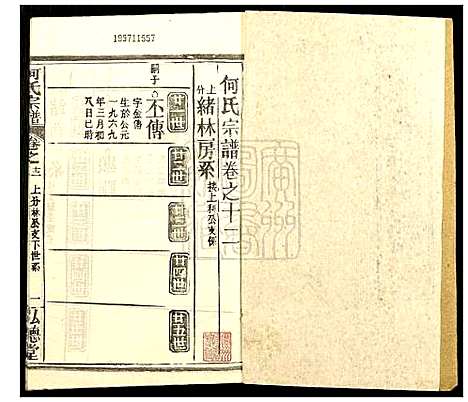 195711557
何氏宗譜卷之十二
上分緒林房系 接上利公支係
廿一世
廿二世
廿三世
廿四世
廿五世
嗣子
丕傳
字金傳
生於公元
一九六九
年三月初
八日巳時
何氏宗譜 卷之十二 上分林公支下世系 一 弘德堂